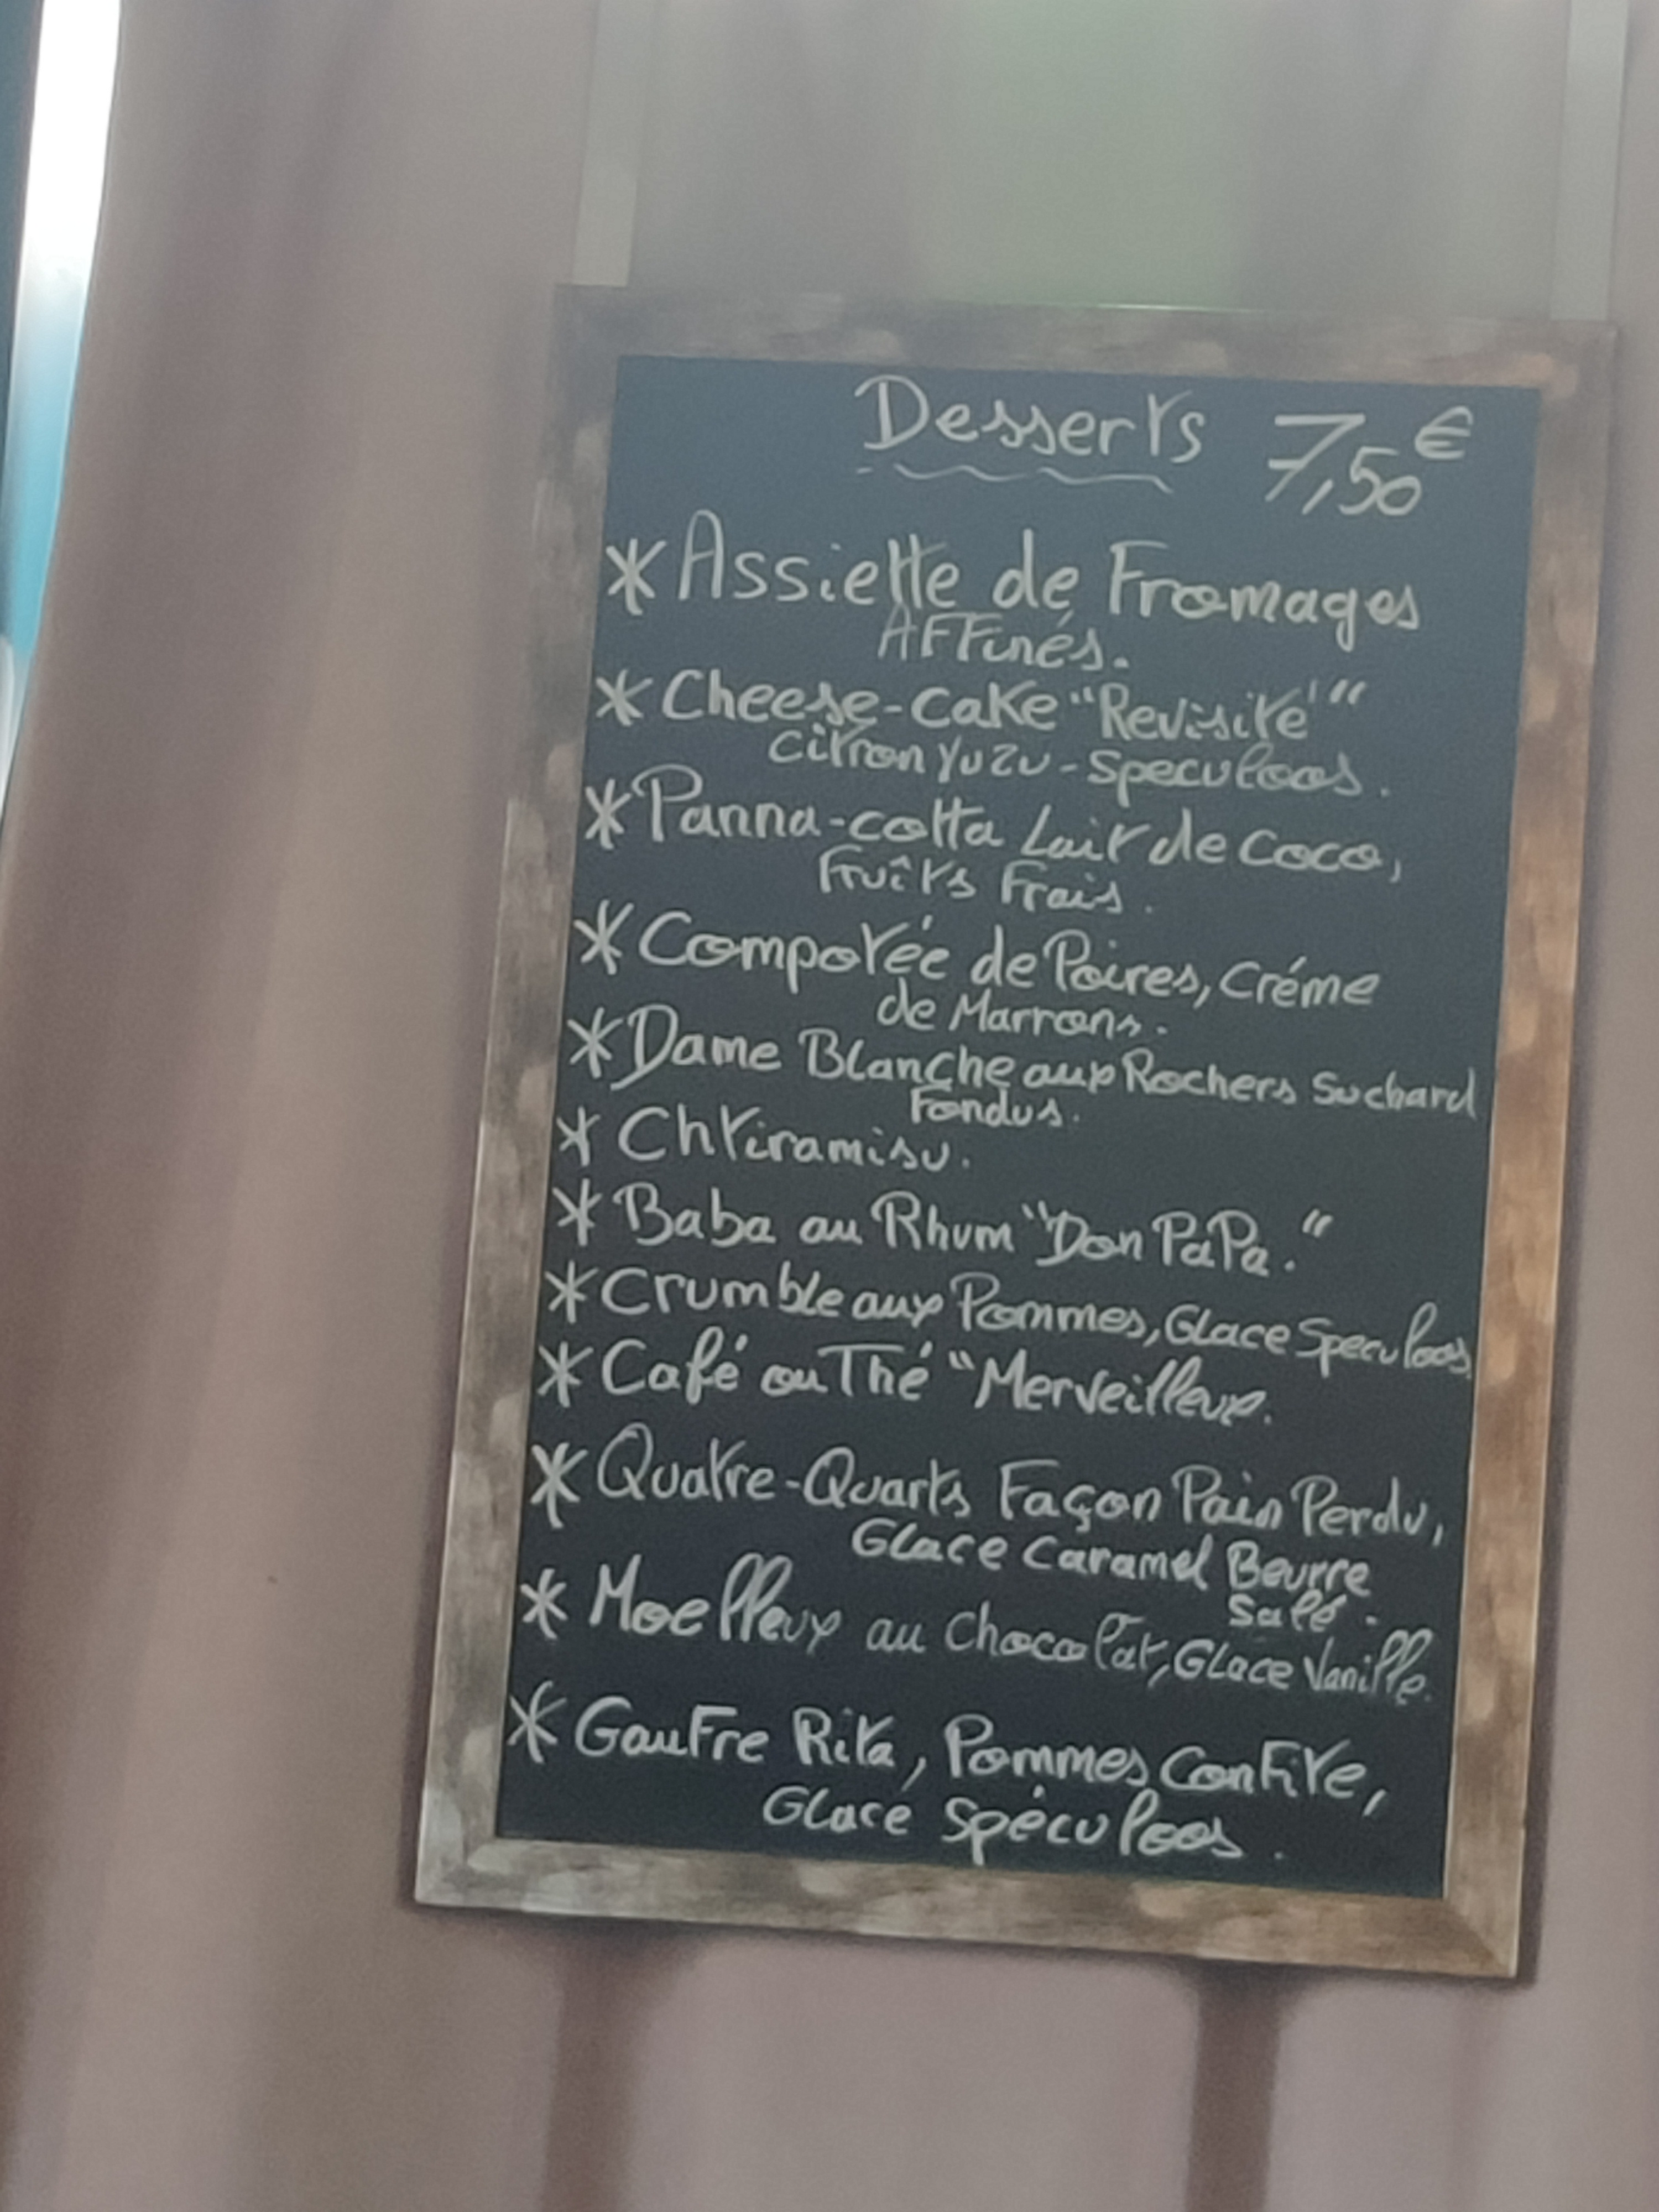 Desserts 7,50€
* Assiette de Fromages
AFFinés.
* Cheese-cake "Revisité"
citron yuzu - speculoos.
* Panna-cotta Lait de Coco,
Fruîts Frais.
* Compotée de Poires, Créme
de Marrons.
* Dame Blanche aux Rochers Suchard
Fondus.
* Chtiramisu.
* Baba au Rhum "Don PaPa."
* Crumble aux Pommes, Glace Speculoos.
* Café ou Thé "Merveilleux.
* Quatre-Quarts Façon Pain Perdu,
Glace Caramel Beurre
Salé.
* Moelleux au Chocolat, Glace Vanille.
* GauFre Rita, Pommes ConFite,
Glace Spéculoos.